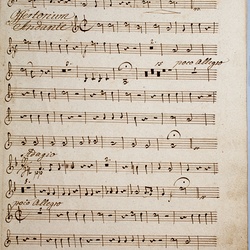 Offertorium
Andante
15 poco Allegro
Adagio
poco allegro